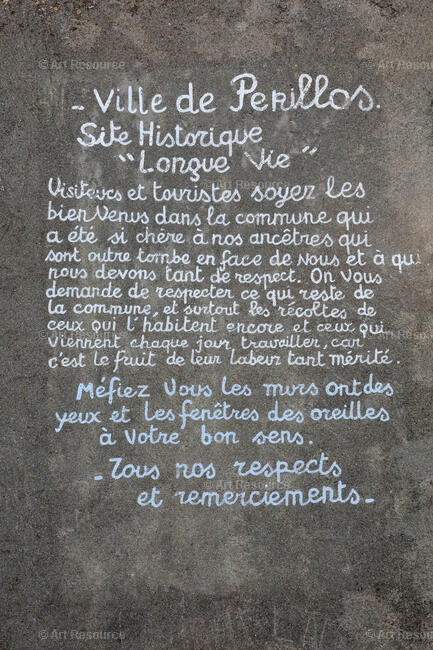 © Art Resource © Art Resource
- Ville de Perillos.
Site Historique
"Longue Vie"
Visiteurs et touristes soyez les
bien Venus dans la commune qui
a été si chère à nos ancêtres qui
sont outre tombe en face de Nous et à qui
nous devons tant de respect. On Vous
demande de respecter ce qui reste de
la commune, et surtout les récoltes de
ceux qui l'habitent encore et ceux qui
Viennent chaque jour travailler, car
c'est le fruit de leur labeur tant mérité.
Méfiez Vous les murs ont des
yeux et les fenêtres des oreilles
à Votre bon sens.
- Tous nos respects
et remerciements -
© Art Resource © Art Resource